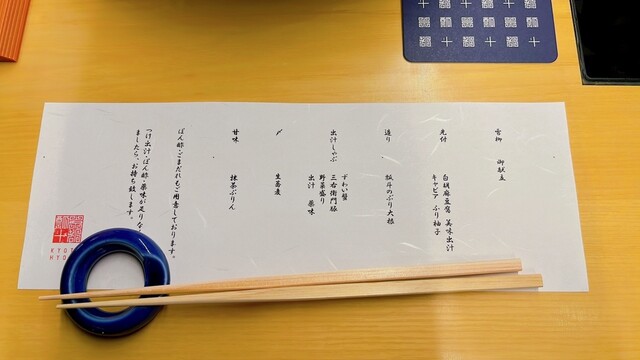 雪柳 御献立
先付
白胡麻豆腐 美味出汁
キャビア ふり柚子
造り
瓢斗のぶり大根
出汁しゃぶ
ずわい蟹
三右衛門豚
野菜盛り
出汁 薬味
〆
生蕎麦
甘味
抹茶ぷりん
ぽん酢・ごまだれもご用意しております。
つけ出汁・ぽん酢・薬味が足りな
ましたら、お持ち致します。
KYOT
HYO